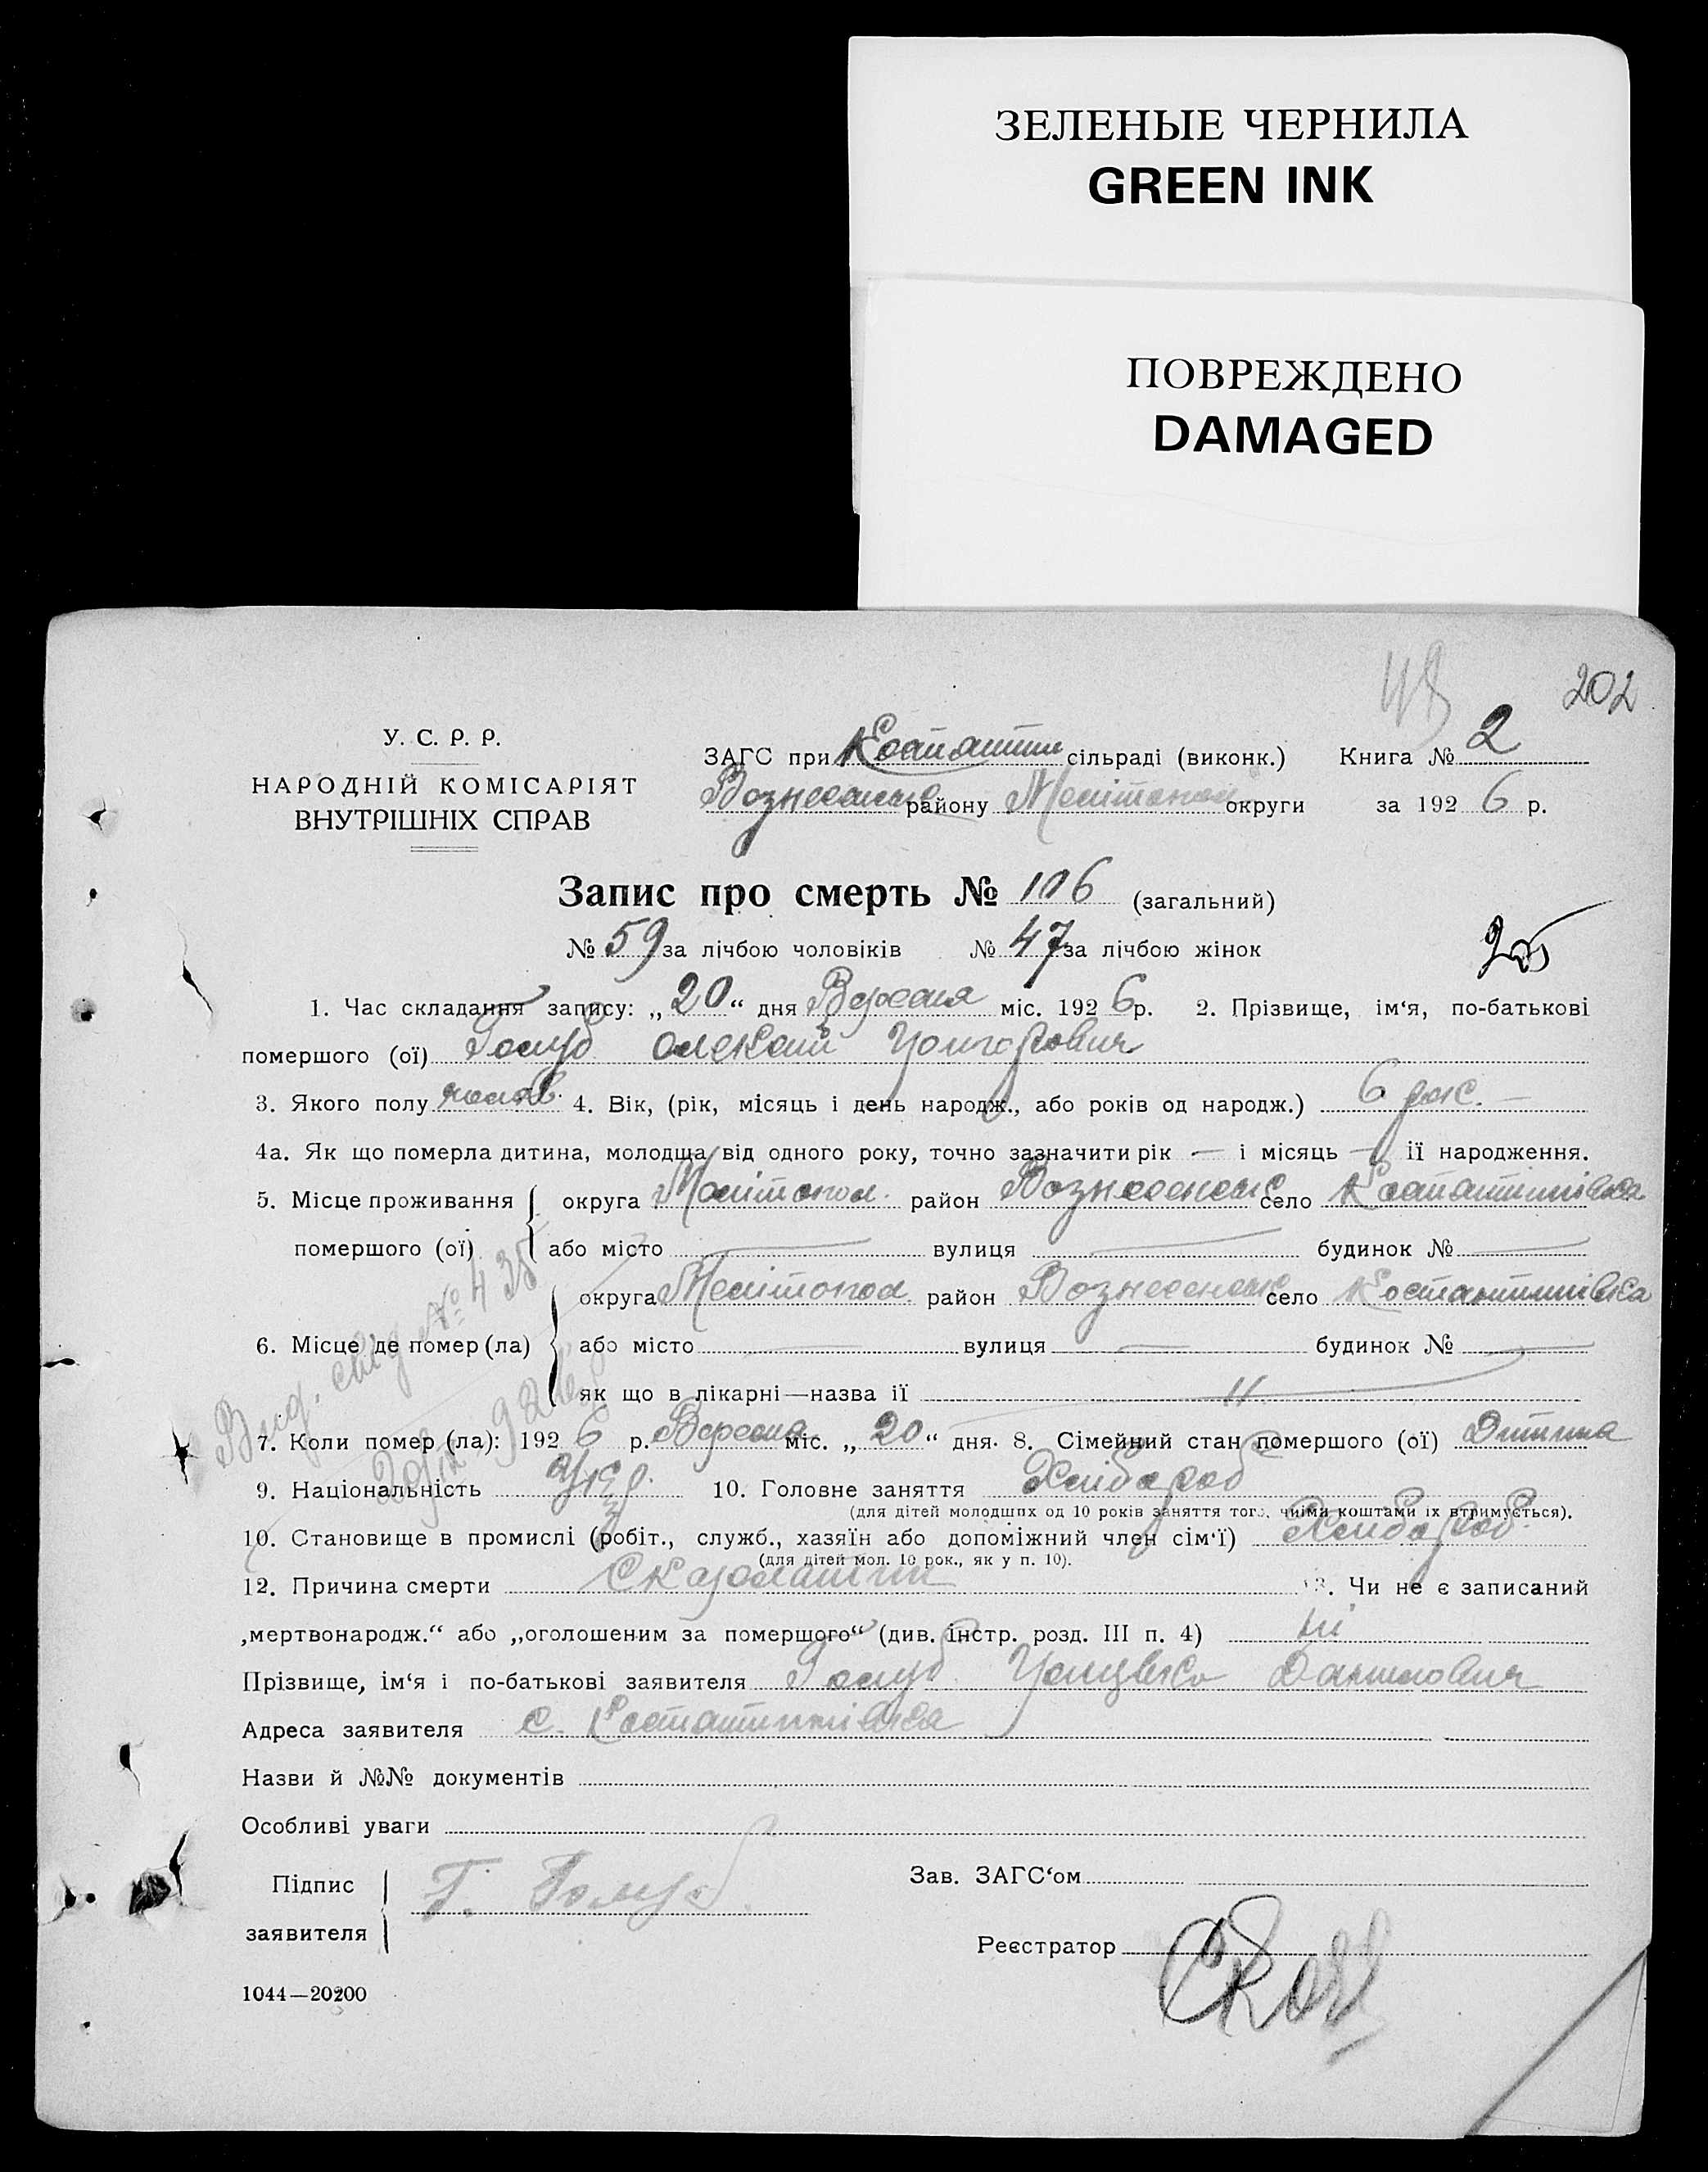 ЗЕЛЕНЫЕ ЧЕРНИЛА
GREEN INK
ПОВРЕЖДЕНО
DAMAGED
202
У. С. Р. Р.
НАРОДНІЙ КОМІСАРІЯТ
ВНУТРІШНІХ СПРАВ
ЗАГС при Костянтин сільраді (виконк.) Книга № 2
Вознесенск району Мелітопол округи за 1926 р.
Запис про смерть № 106 (загальний)
№ 59 за лічбою чоловіків № 47 за лічбою жінок
1. Час складання запису: „20“ дня Вересня міс. 1926 р. 2. Прізвище, ім‘я, по-батькові
помершого (ої) Голуб Олексій
3. Якого полу чолов. 4. Вік, (рік, місяць і день народж., або років од народж.) 6
4а. Як що померла дитина, молодща від одного року, точно зазначити рік — і місяць — її народження.
5. Місце проживання округа Мелітопол. район Вознесенск село Костантинівка
помершого (ої) або місто — вулиця — будинок № —
округа Мелітопол. район Вознесенск село Костантинівка
6. Місце де помер (ла) або місто — вулиця — будинок № —
як що в лікарні—назва її — 11 —
7. Коли помер (ла): 1926 р. Вересня міс. „20“ дня. 8. Сімейний стан помершого (ої) Дитина
9. Національність Укр. 10. Головне заняття Хлібороб
(для дітей молодших од 10 років заняття того, чиїми коштами їх втримується).
10. Становище в промислі (робіт., служб., хазяїн або допоміжний член сім‘ї) Хлібороб
(для дітей мол. 10 рок., як у п. 10).
12. Причина смерти Скарлатин 13. Чи не є записаний
„мертвонародж.“ або „оголошеним за помершого“ (див. інстр. розд. III п. 4) ні
Прізвище, ім‘я і по-батькові заявителя Голуб Данилович
Адреса заявителя с. Костантинівка
Назви й №№ документів
Особливі уваги
Підпис
заявителя
Г. Голуб
Зав. ЗАГС‘ом
Реєстратор
1044—20200
Вид. свід № 435